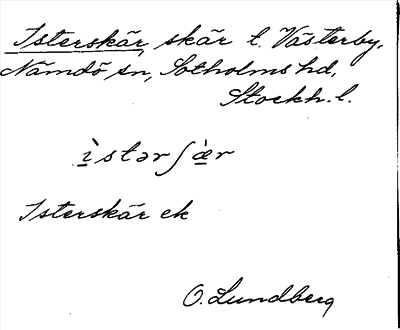 Isterskär, skär t. Västerby,
Nämdö sn, Sotholms hd,
Stockh. l.
ì̱stərʃæ̱̀r
Isterskär ek
O. Lundberg